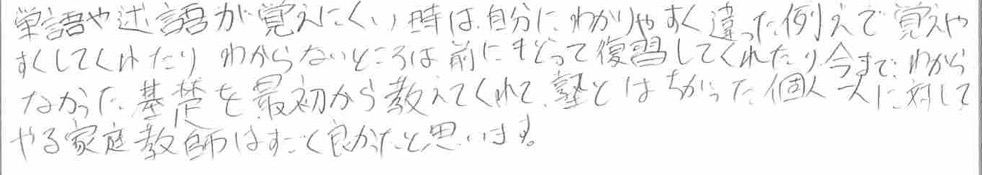 単語や述語が覚えにくい時は、自分にわかりやすく違った例えで覚えや
すくしてくれたり わからないところは前にもどって復習してくれたり、今まで、わから
なかった基楚を最初から教えてくれて、塾とはちがった個人一人に対して
やる家庭教師はすごく良かったと思います。